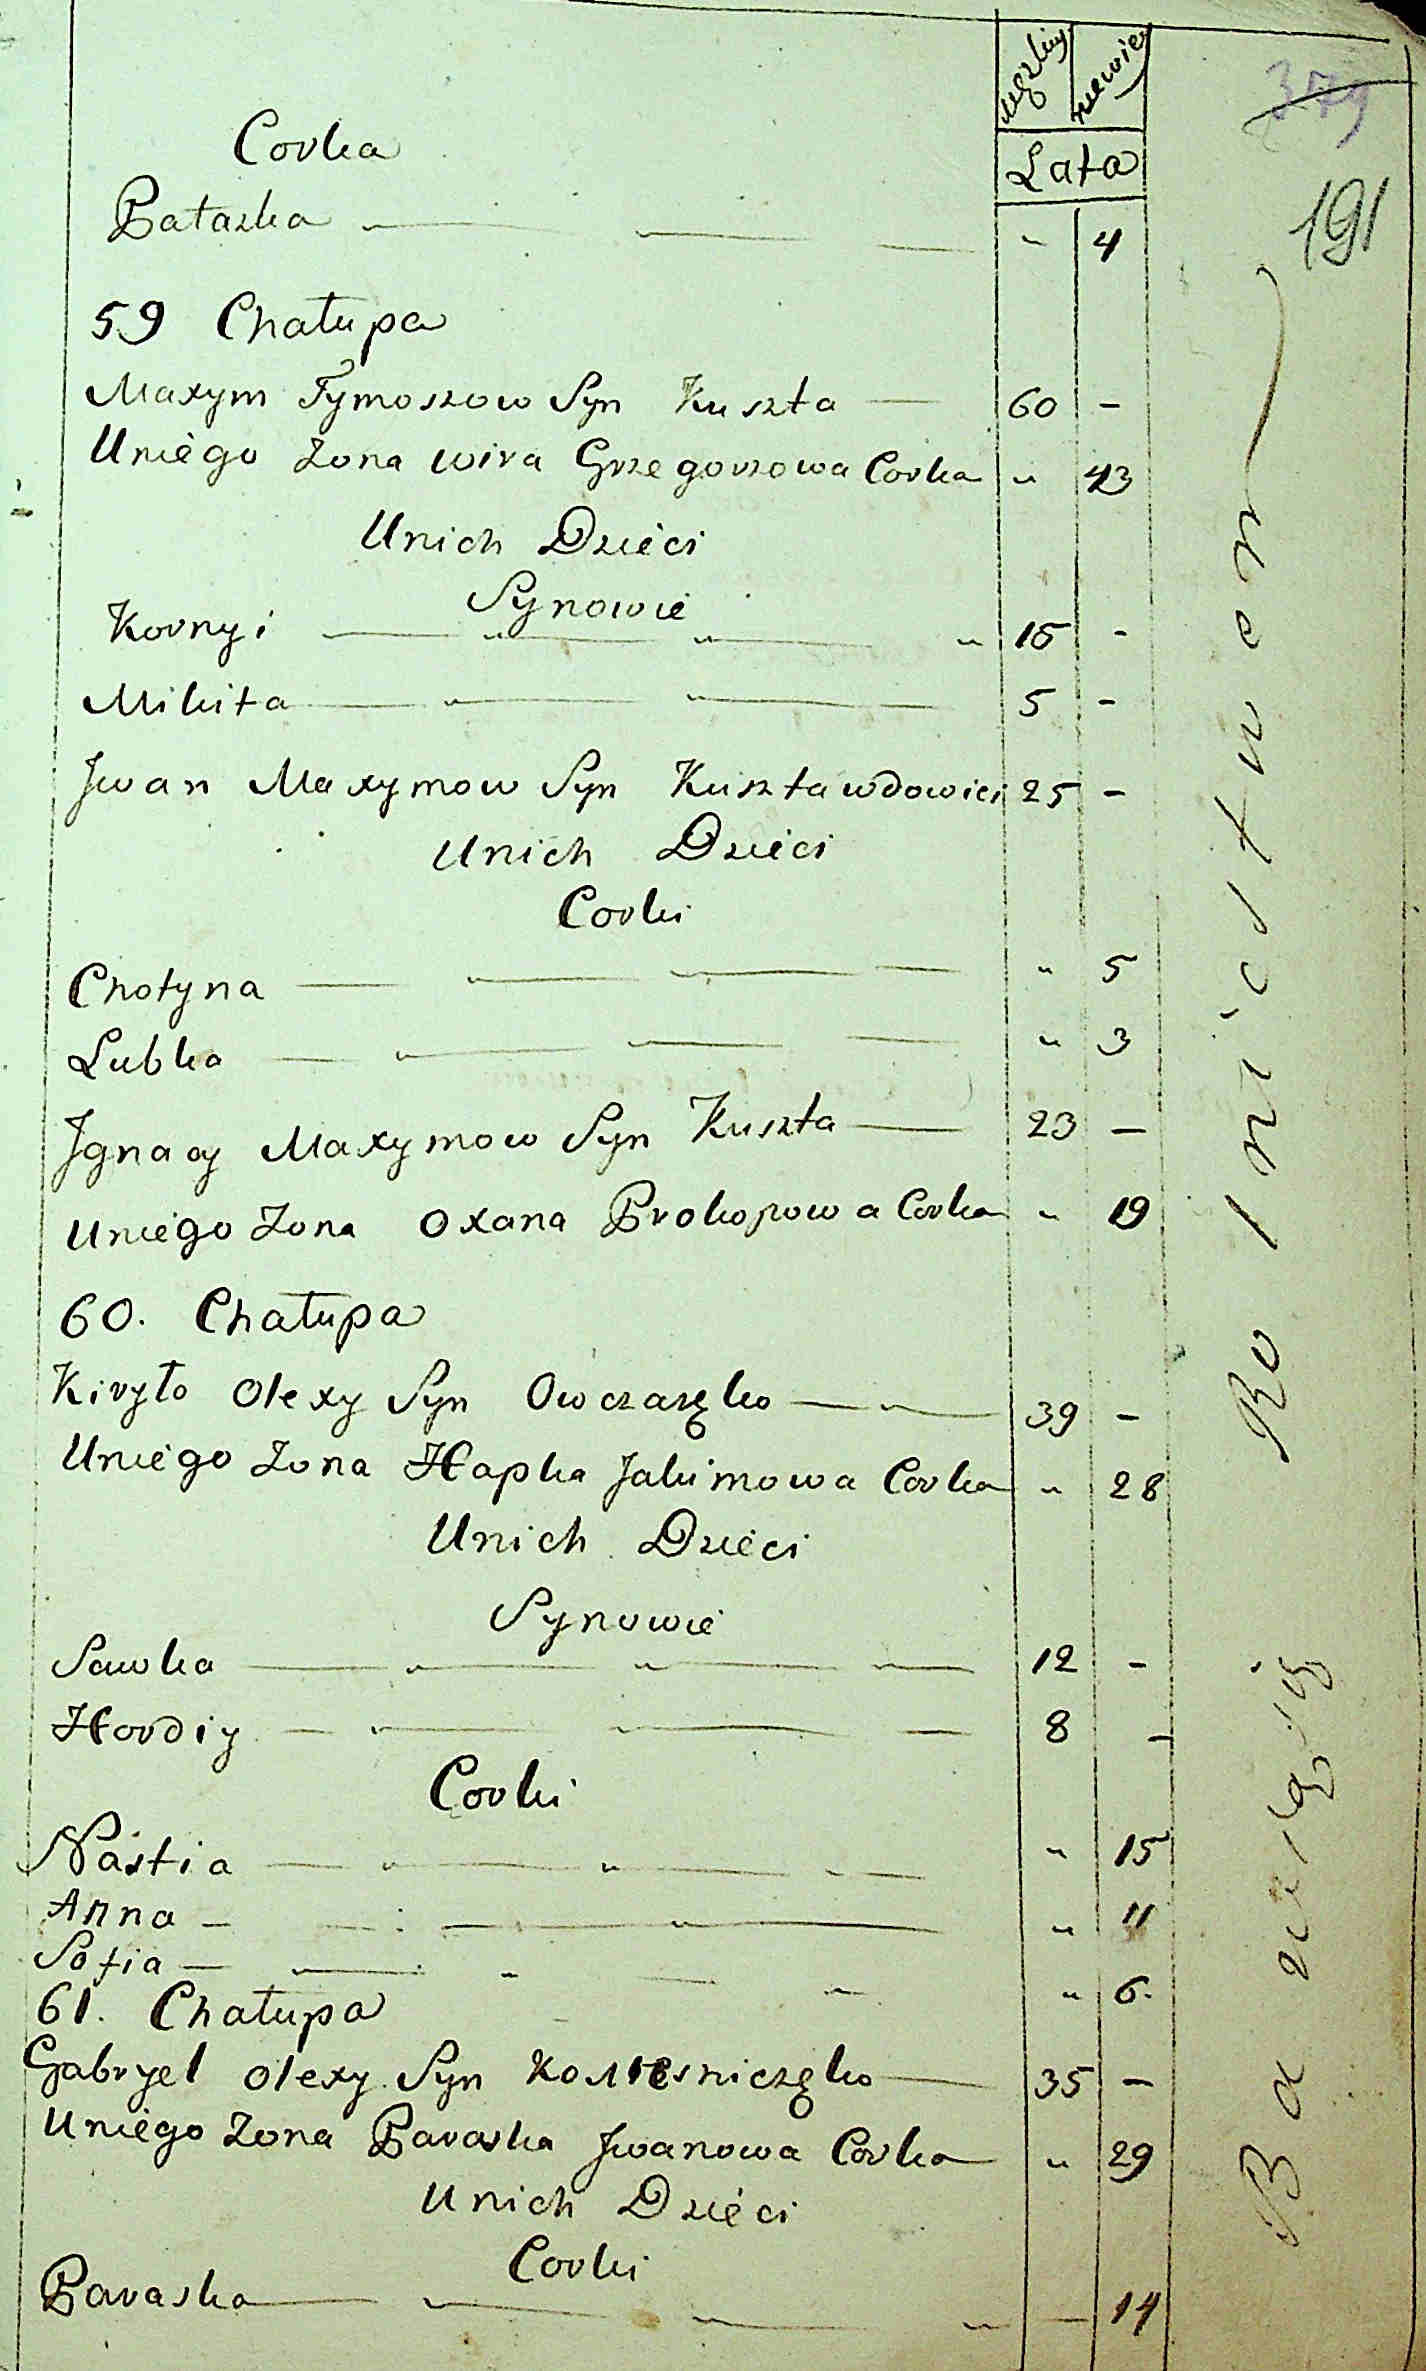 męzkiej niewie
Lata
379
191
Corka
Pałaszka — — — " 4
59 Chałupa
Maxym Tymoszow Syn Kuszta — 60 -
Uniego Zona Wira Grzegorzowa Corka " 43
Unich Dzieci
Synowie
Kornyi — " — " — " 15 -
Mikita — " — " — 5 -
Jwan Maxymow Syn Kuszta wdowiec 25 -
Unich Dzieci
Corki
Chotyna — " — " — " 5
Lubka — " — — " 3
Jgnacy Maxymow Syn Kuszta — 23 —
Uniego Zona Oxana Prokopowa Corka " 19
60. Chałupa
Kiryło Olexy Syn Owczaręko — " — 39 -
Uniego Zona Hapka Jakimowa Corka " 28
Unich Dzieci
Synowie
Sawka — " — " — 12 -
Hordiy — " — — 8 -
Corki
Nastia — " — " — " 15
Anna — — " — " 11
Sofia — " — " — " 6.
61. Chałupa
Gabryel Olexy Syn — 35 —
Uniego Zona Paraska Jwanowa Corka " 29
Unich Dzieci
Corki
Paraska — " — " — " — 14